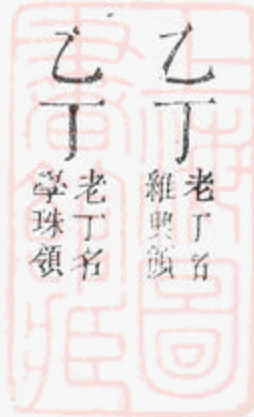 乙丁
老丁名
雞與領
乙丁
老丁名
學珠領